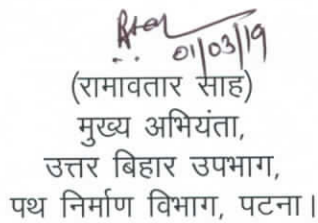 01/03/19
(रामावतार साह)
मुख्य अभियंता,
उत्तर बिहार उपभाग,
पथ निर्माण विभाग, पटना।